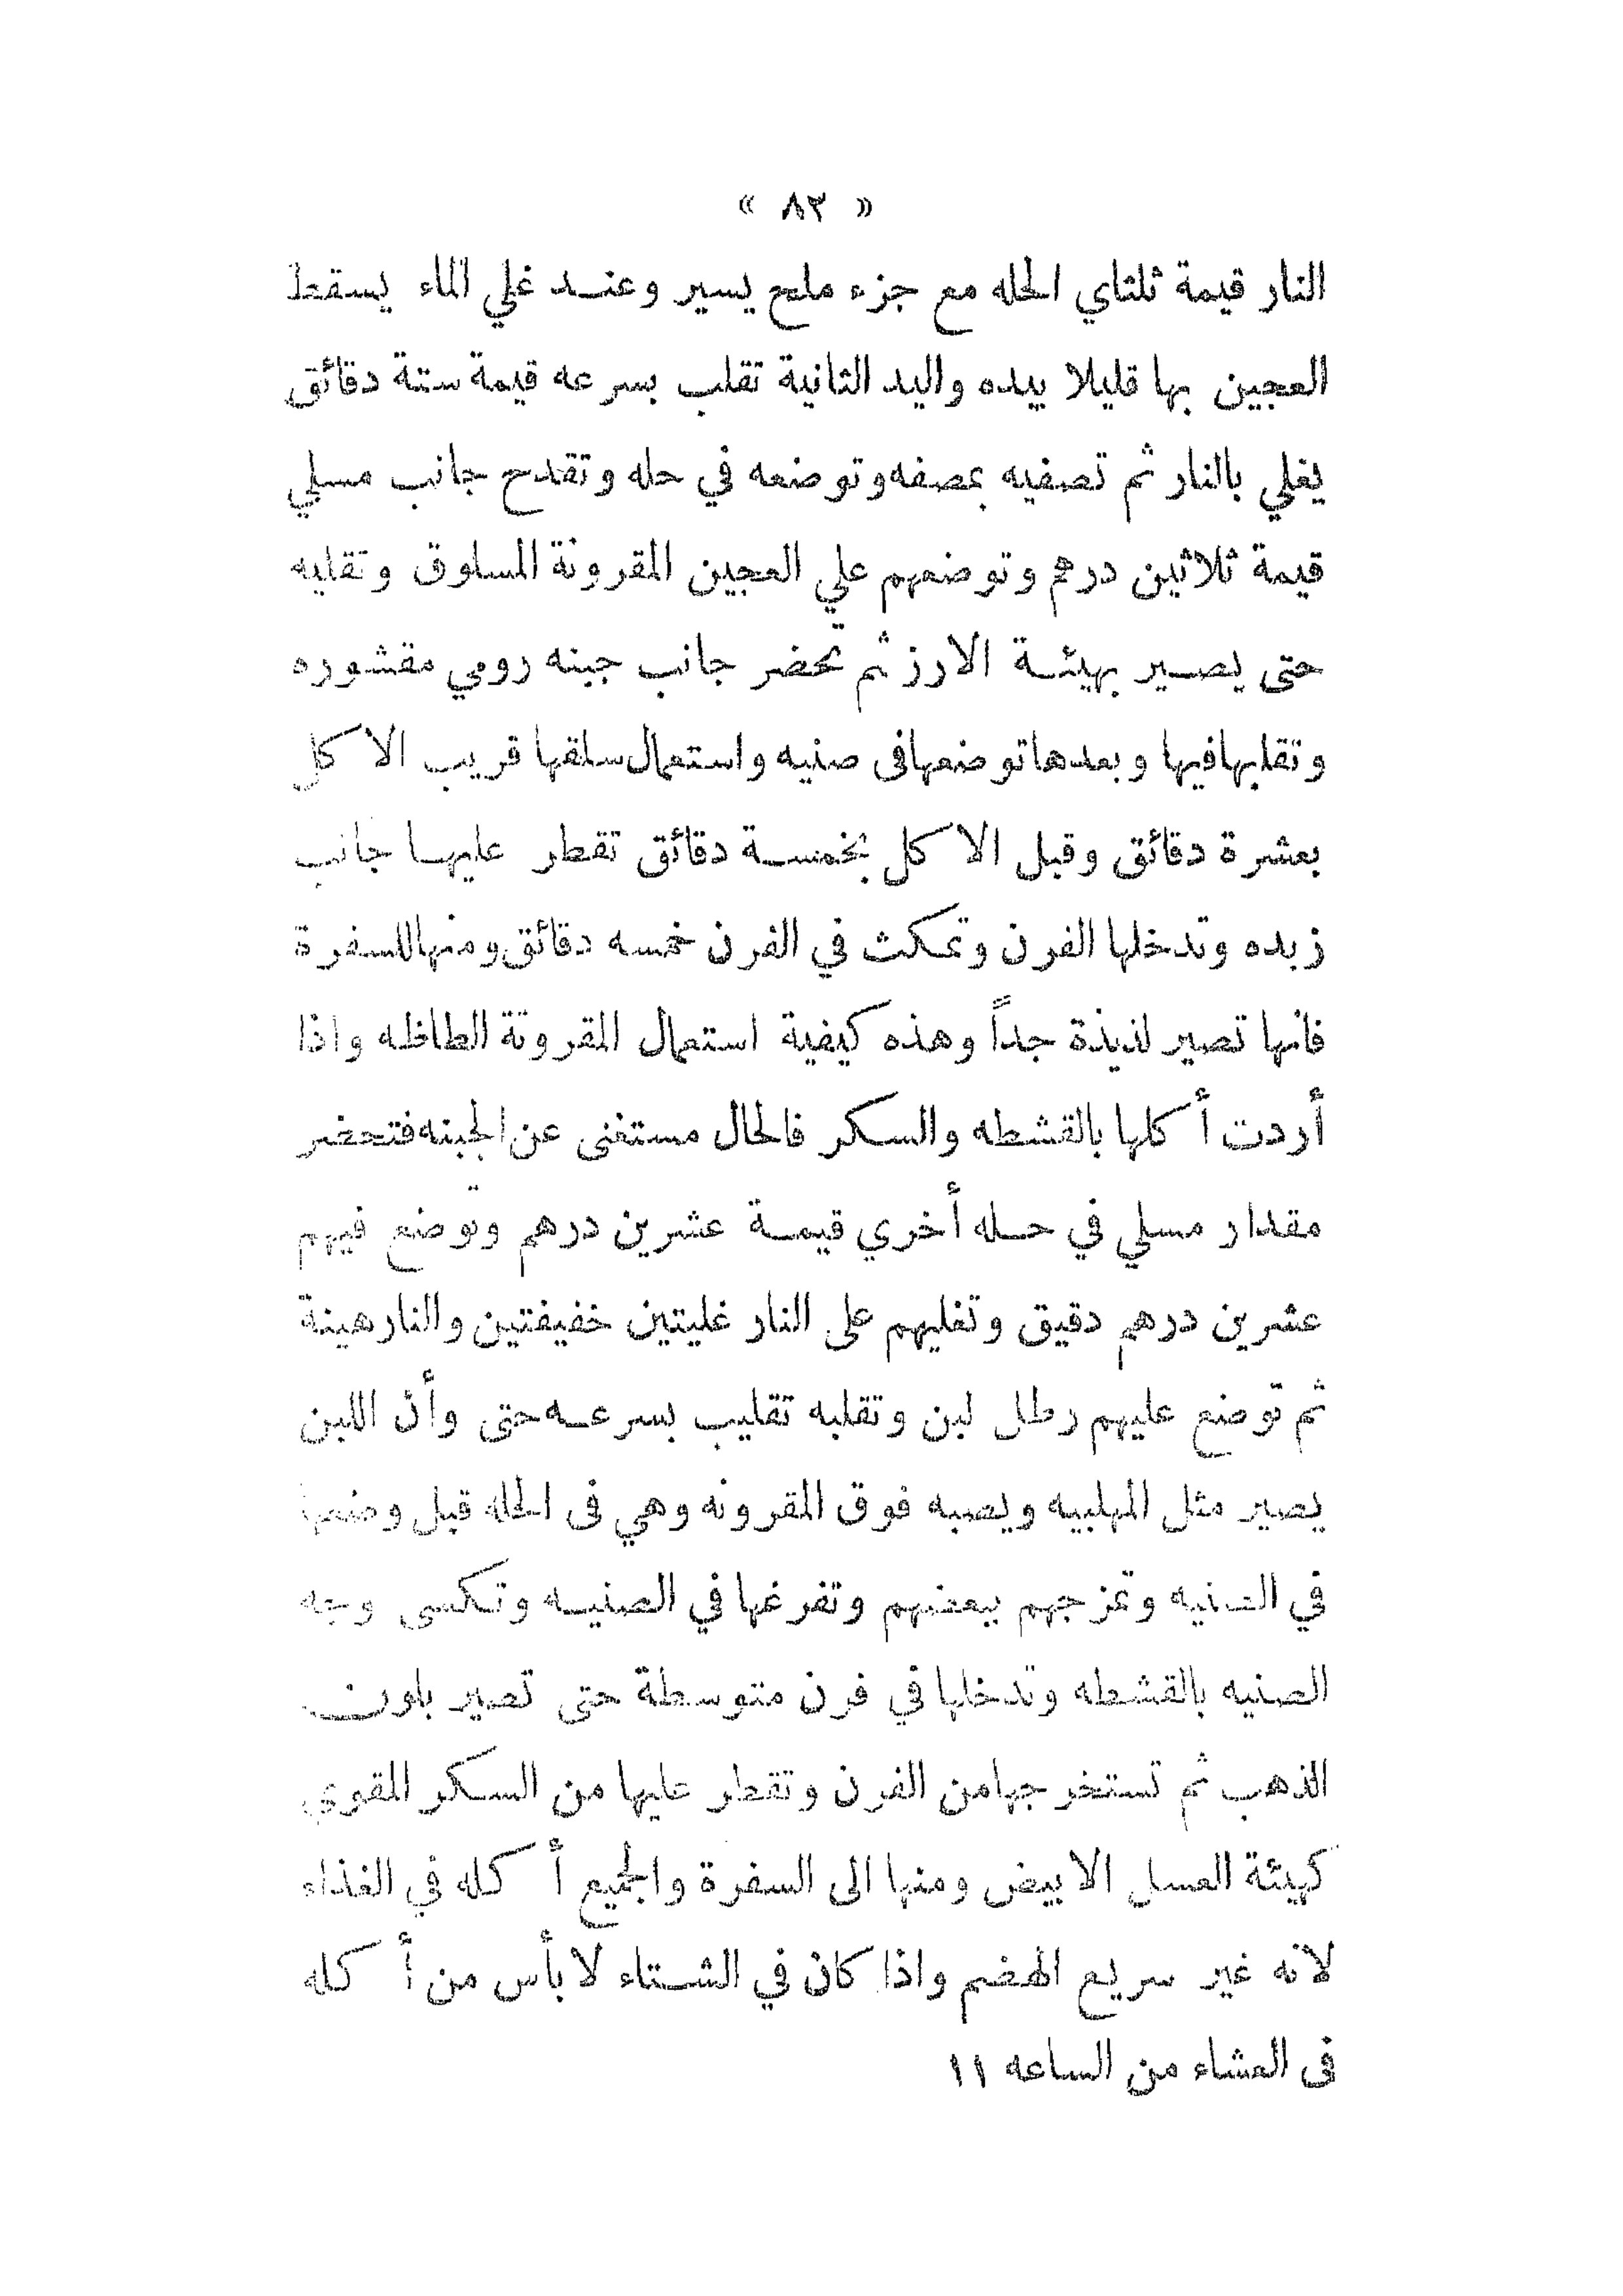 « ٨٣ »
النار قيمة ثلثاي الحله مع جزء ملح يسير وعند غلي الماء يسقط
العجين بها قليلا بيده واليد الثانية تقلب بسرعه قيمة ستة دقائق
يغلي بالنار ثم تصفيه بمصفه وتوضعه في حله وتقدح جانب مسلي
قيمة ثلاثين درهم وتوضعهم علي العجين المقرونة المسلوق وتقلبه
حتى يصير بهيئة الارز ثم تحضر جانب جبنه رومي مقشوره
وتقلبها فيها وبعدها توضعها فى صنيه واستعمال سلقها قريب الاكل
بعشرة دقائق وقبل الاكل بخمسة دقائق تقطر عليها جانب
زبده وتدخلها الفرن وتمكث في الفرن خمسه دقائق ومنها للسفرة
فانها تصير لذيذة جداً وهذه كيفية استعمال المقرونة الطاظه واذا
أردت أكلها بالقشطه والسكر فالحال مستغنى عن الجبنه فتحضر
مقدار مسلي في حله أخري قيمة عشرين درهم وتوضع فيهم
عشرين درهم دقيق وتغليهم على النار غليتين خفيفتين والنار هينة
ثم توضع عليهم رطل لبن وتقلبه تقليب بسرعه حتى وأن اللبن
يصير مثل المهلبيه ويصبه فوق المقرونه وهي فى الحله قبل وضعها
في الصنيه وتمزجهم ببعضهم وتفرغها في الصنيه وتكسى وجه
الصنيه بالقشطه وتدخلها في فرن متوسطة حتى تصير بلون
الذهب ثم تستخرجها من الفرن وتقطر عليها من السكر المقوي
كهيئة العسل الابيض ومنها الى السفرة والجميع أكله في الغذاء
لانه غير سريع الهضم واذا كان في الشتاء لا بأس من أكله
فى العشاء من الساعه ١١